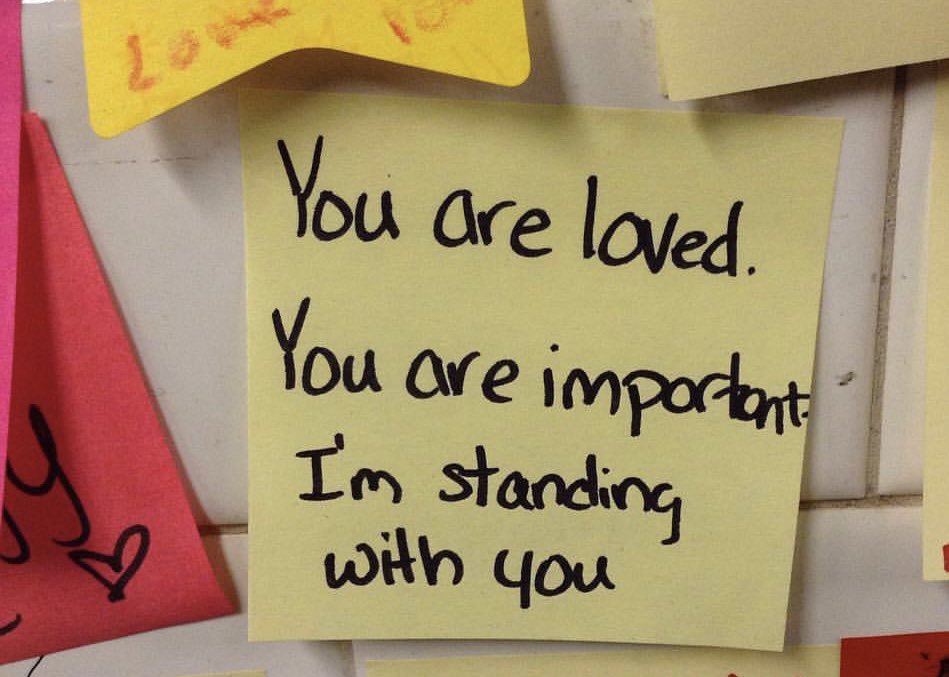 You are loved.
You are important.
I'm standing
with you